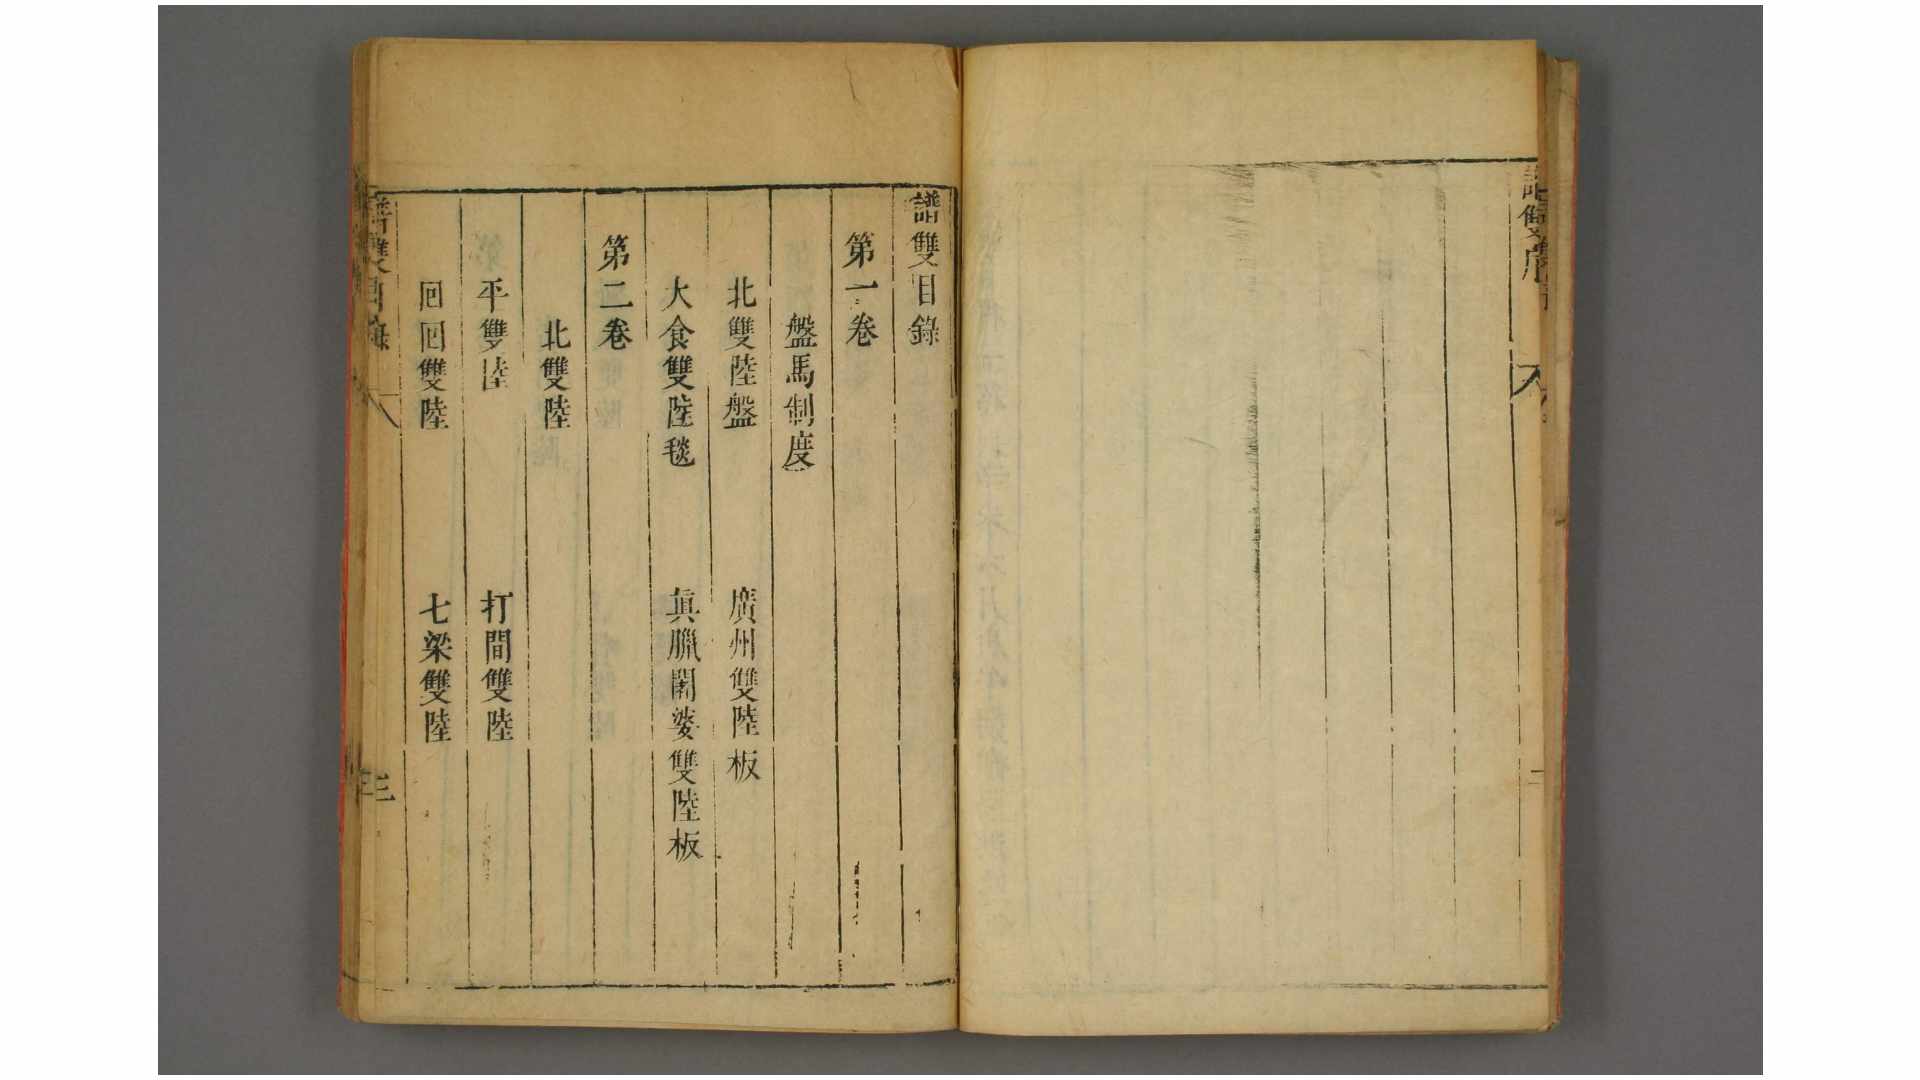 譜雙目錄
第一卷
盤馬制度
北雙陸盤
廣州雙陸板
大食雙陸毯
眞臘闍婆雙陸板
第二卷
北雙陸
平雙陸
打間雙陸
回回雙陸
七梁雙陸
譜雙目錄
三